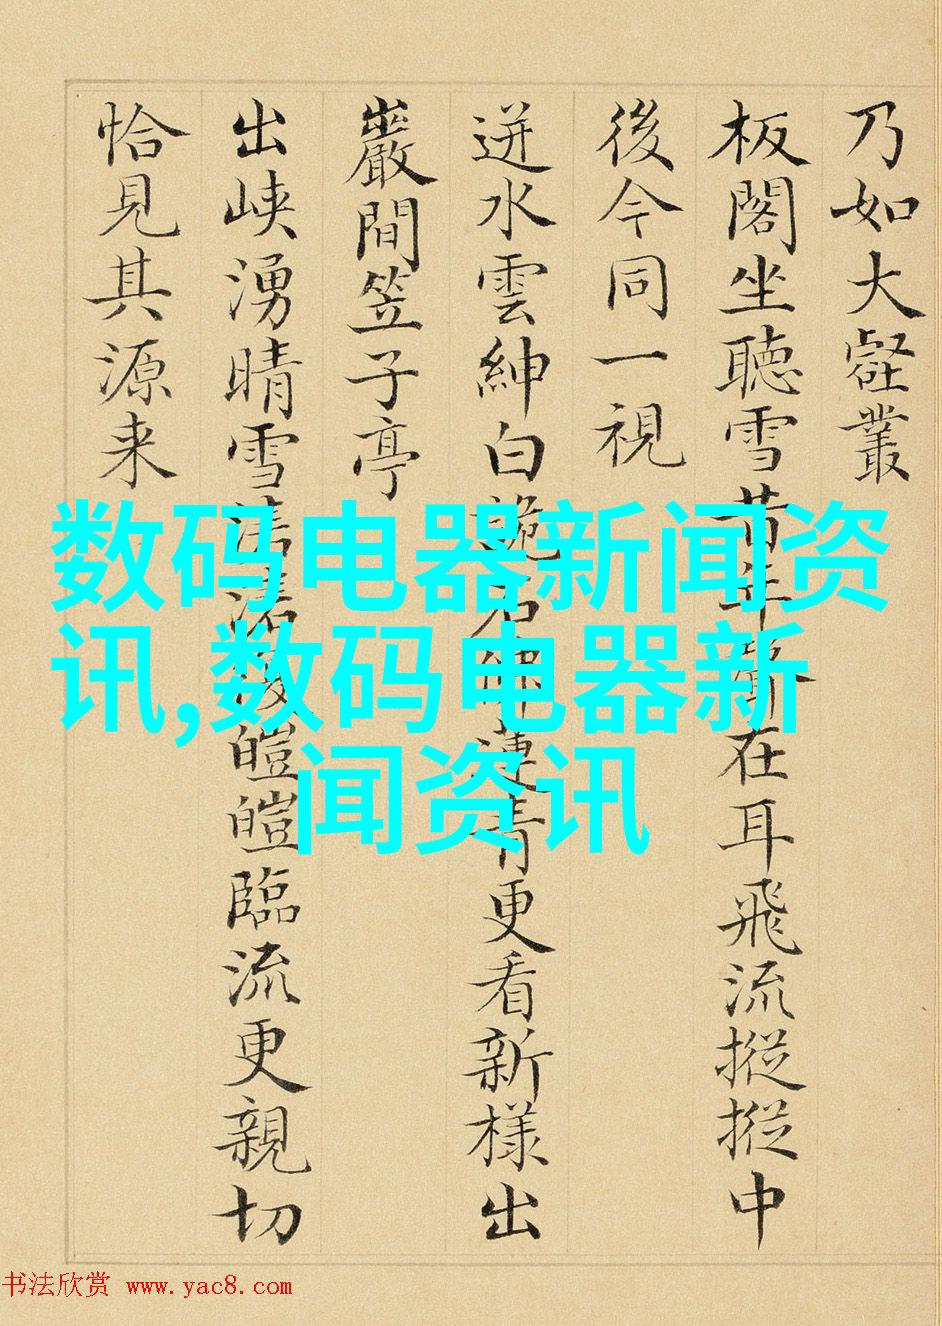 乃如大壑叢
板閣坐聽雪昔年聲在耳飛流摐摐中
後今同一視
迸水雲紳白詭石佛蓮青更看新樣出
巖間笠子亭
出峽湧晴雪清潭後皚皚臨流更親切
恰見其源来
数码电器新闻资
讯,数码电器新
闻资讯
书法欣赏 www.yac8.com